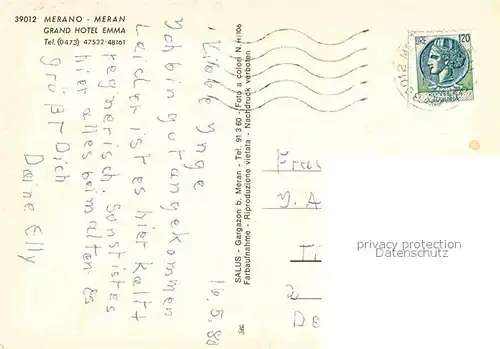 39012 MERANO - MERAN
GRAND HOTEL EMMA
Tel. (0473) 47522-48161
16.5.80
Liebe Inge
Ich bin gut angekommen
Leider ist es hier kalt +
regnerisch. Sonst ist es
hier alles beim alten Es
grüßt Dich
Deine Elly
SALUS - Gargazon b. Meran - Tel. 91 3 60 - Foto a colori N. H/106
Farbaufnahme - Riproduzione vietata - Nachdruck verboten
LIRE 120
Frau
privacy protection
Datenschutz